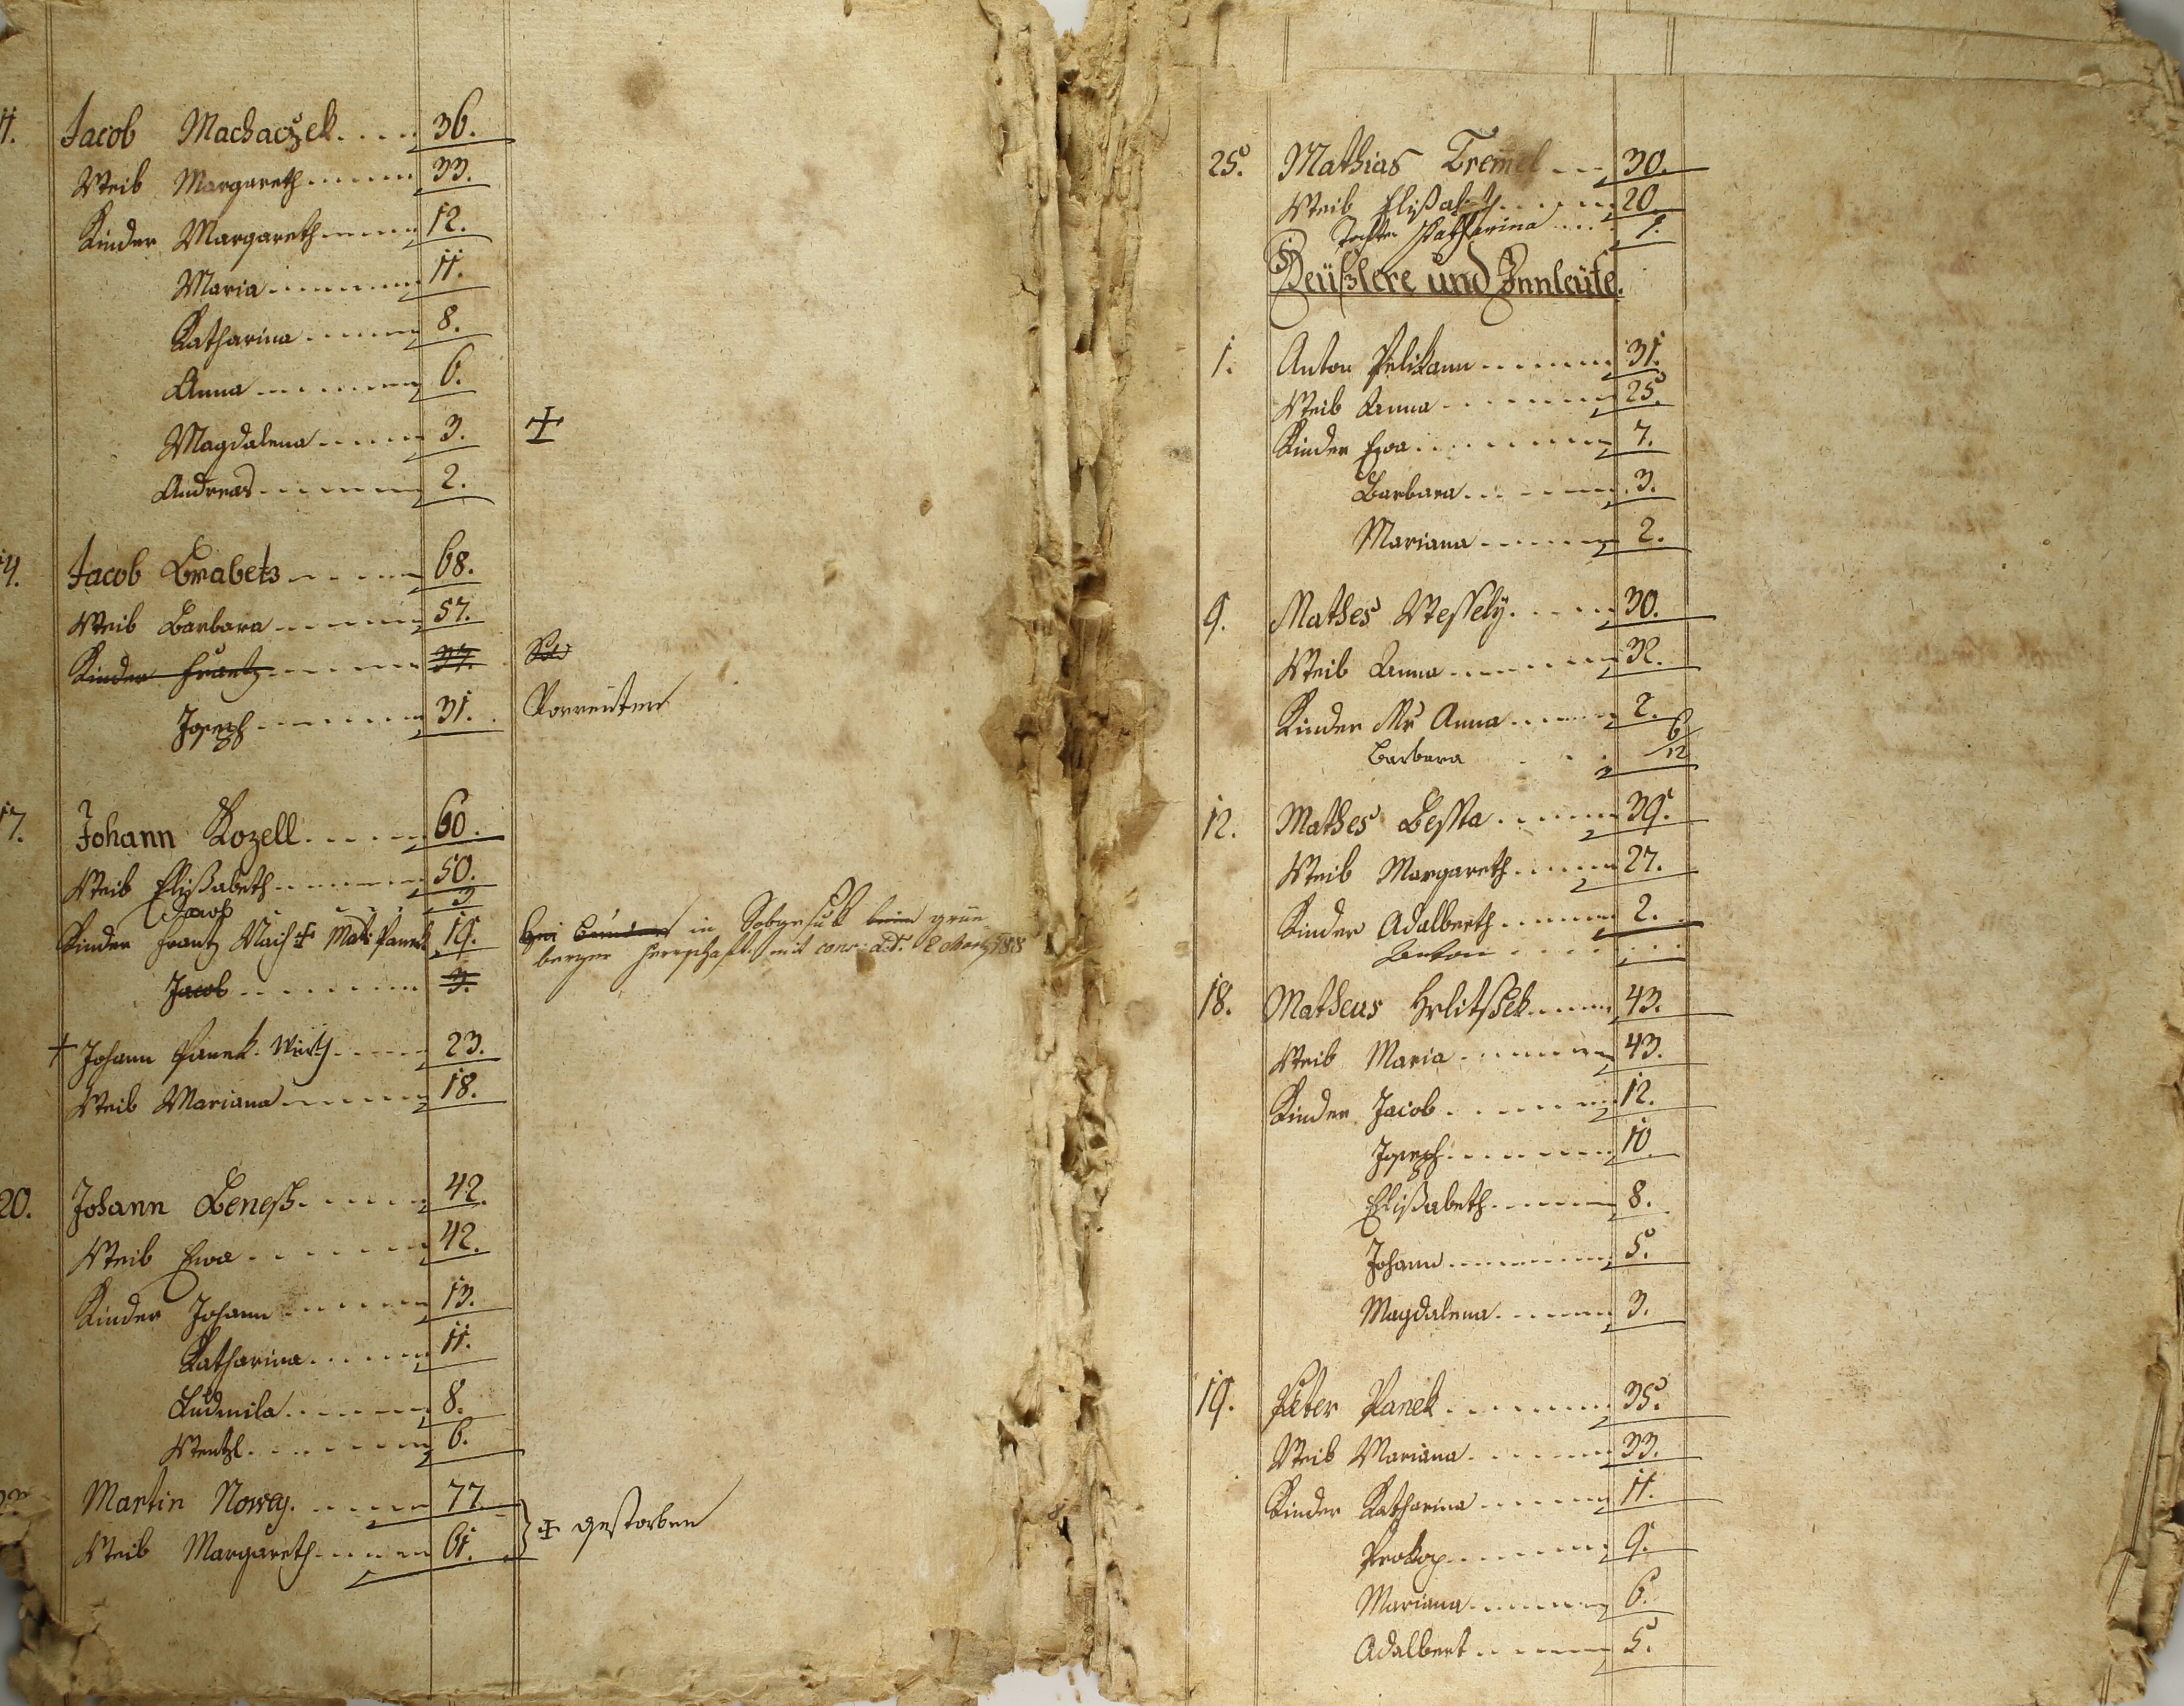 11. Jacob Machaczek 36.
Weib Margareth 33.
Kinder Margareth 12.
Maria 11.
Katharina 8.
Anna 6.
Magdalena 3. ✝
Andreas 2.
14. Jacob Brabetz 68.
Weib Barbara 57.
Kinder Frantz
Joseph 31.
17. Johann Kozell 60.
Weib Elißabeth 50.
Jacob 3
Kinder Frantz 19. in
berger Herrschaft mit
Jacob 3.
✝ Johann Panek 23.
Weib Mariana 18.
20. Johann Beneß 42.
Weib Ewa 42.
Kinder Johann 13.
Katharina 11.
Ludmila 8.
Wentzl 6.
Martin Nowey 77.
Weib Margareth 61. ✝ gestorben
25. Mathias Tremel 30.
Weib Elißabeth 20.
Tochter Katharina 1.
Heüßlere und Innleüte.
1. Anton Pelikann 31.
Weib Anna 25.
Kinder Ewa 7.
Barbara 3.
Mariana 2.
9. Mathes Wessely 30.
Weib Anna 32.
Kinder Mr Anna 2.
Barbara 6/12
12. Mathes Bessta 39.
Weib Margareth 27.
Kinder Adalberth 2.
Anton
18. Matheus Hrlitßek 43.
Weib Maria 43.
Kinder Jacob 12.
Joseph 10
Elißabeth 8.
Johann 5.
Magdalena 3.
19. Peter Panek 35.
Weib Mariana 33.
Kinder Katharina 11.
Prokop 9.
Mariana 6.
Adalbert 5.